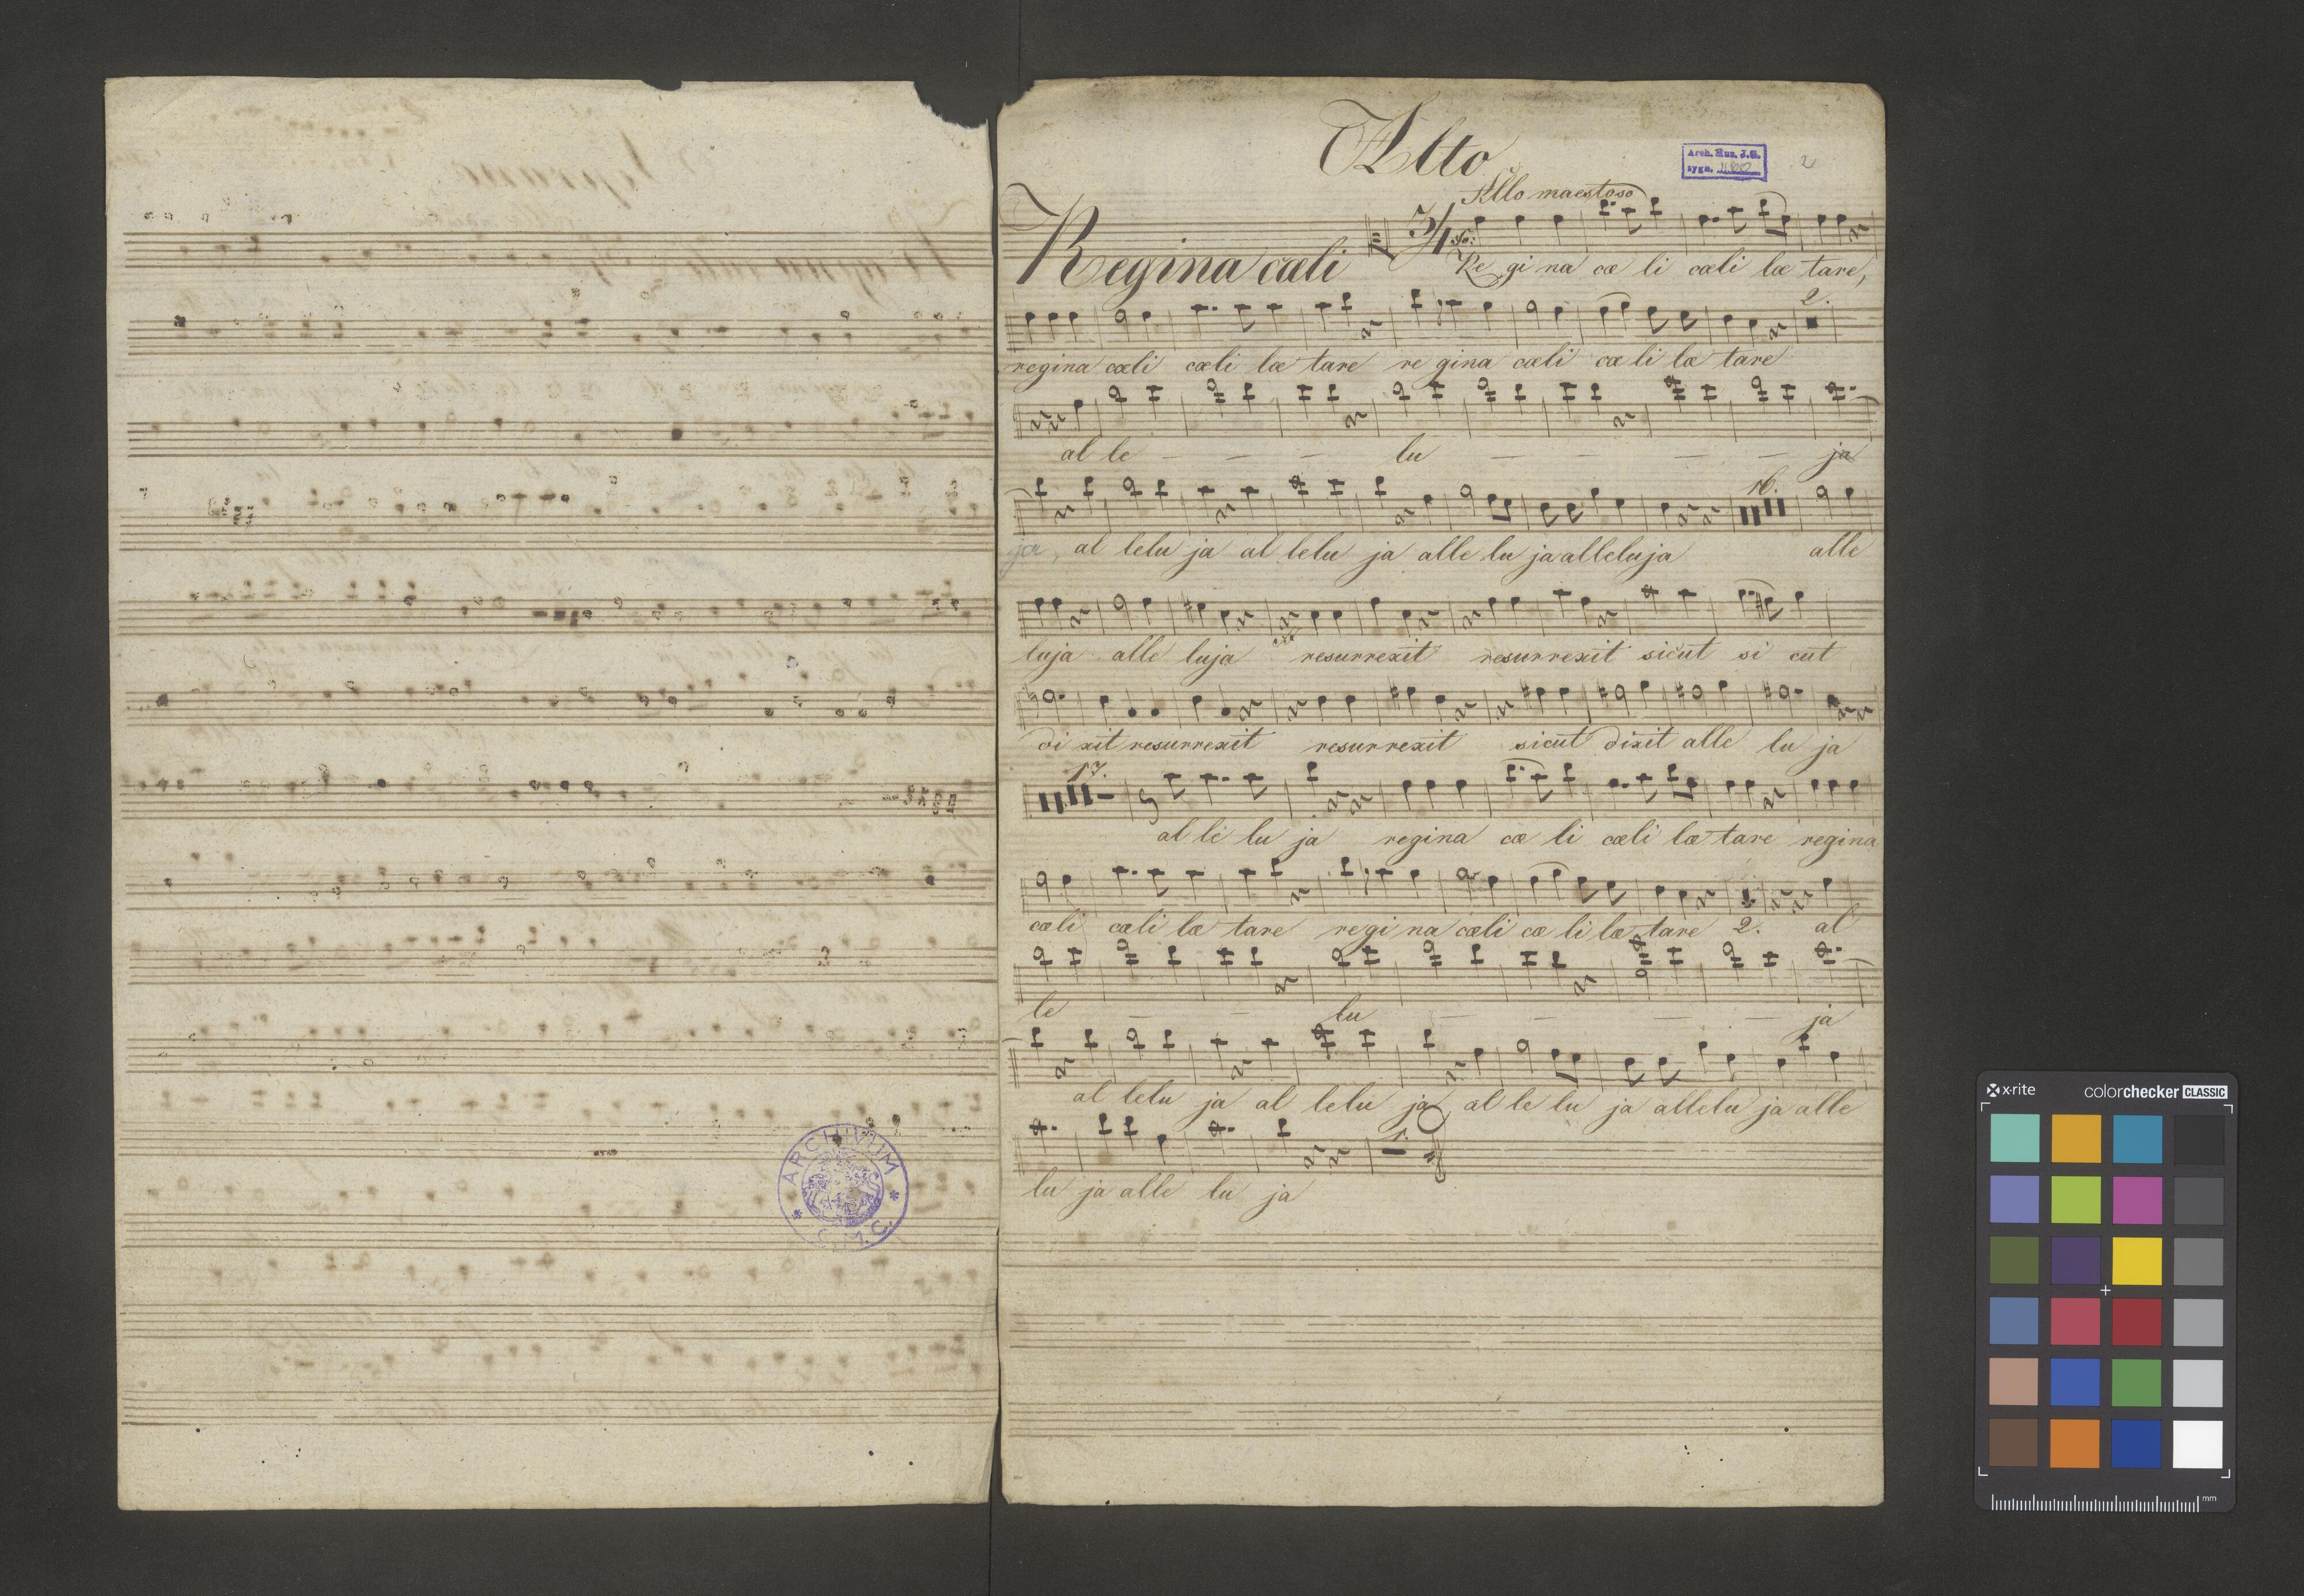 Alto
Arch. Muz. J.G.
sygn.
2
Allo maestoso
3/4 fo:
Regina cæli
Re gi na cæ li cæli læ tare,
2.
regina cæli cæli læ tare re gina cæli cæ li læ tare
al le - - - lu - - - - ja
16.
ja, al lelu ja al lelu ja alle lu ja alleluja alle
luja alle luja resurrexit resurrexit sicut si cut
di xit resurrexit resurrexit sicut dixit alle lu ja
17.
al le lu ja regina cæ li cæli læ tare regina
cæli cæli læ tare regi na cæli cæ li læ tare 2. al
le - - lu - - - - ja
al lelu ja al lelu ja, al le lu ja allelu ja alle
1.
lu ja alle lu ja
ARCHIVUM
C.M.C.
x-rite
colorchecker CLASSIC
mm